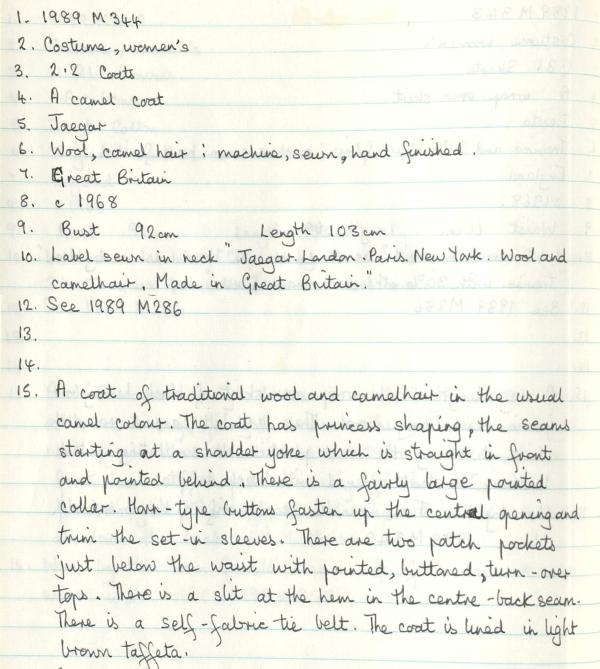 1. 1989 M 344
2. Costume, women's
3. 2.2 Coats
4. A camel coat
5. Jaegar
6. Wool, camel hair : machine, sewn, hand finished.
7. Great Britain
8. c 1968
9. Bust 92cm Length 103cm
10. Label sewn in neck "Jaegar. London. Paris. New York. Wool and
camelhair. Made in Great Britain."
12. See 1989 M286
13.
14.
15. A coat of traditional wool and camelhair in the usual
camel colour. The coat has princess shaping, the seams
starting at a shoulder yoke which is straight in front
and pointed behind. There is a fairly large pointed
collar. Horn-type buttons fasten up the central opening and
trim the set-in sleeves. There are two patch pockets
just below the waist with pointed, buttoned, turn-over
tops. There is a slit at the hem in the centre-back seam.
There is a self-fabric tie belt. The coat is lined in light
brown taffeta.